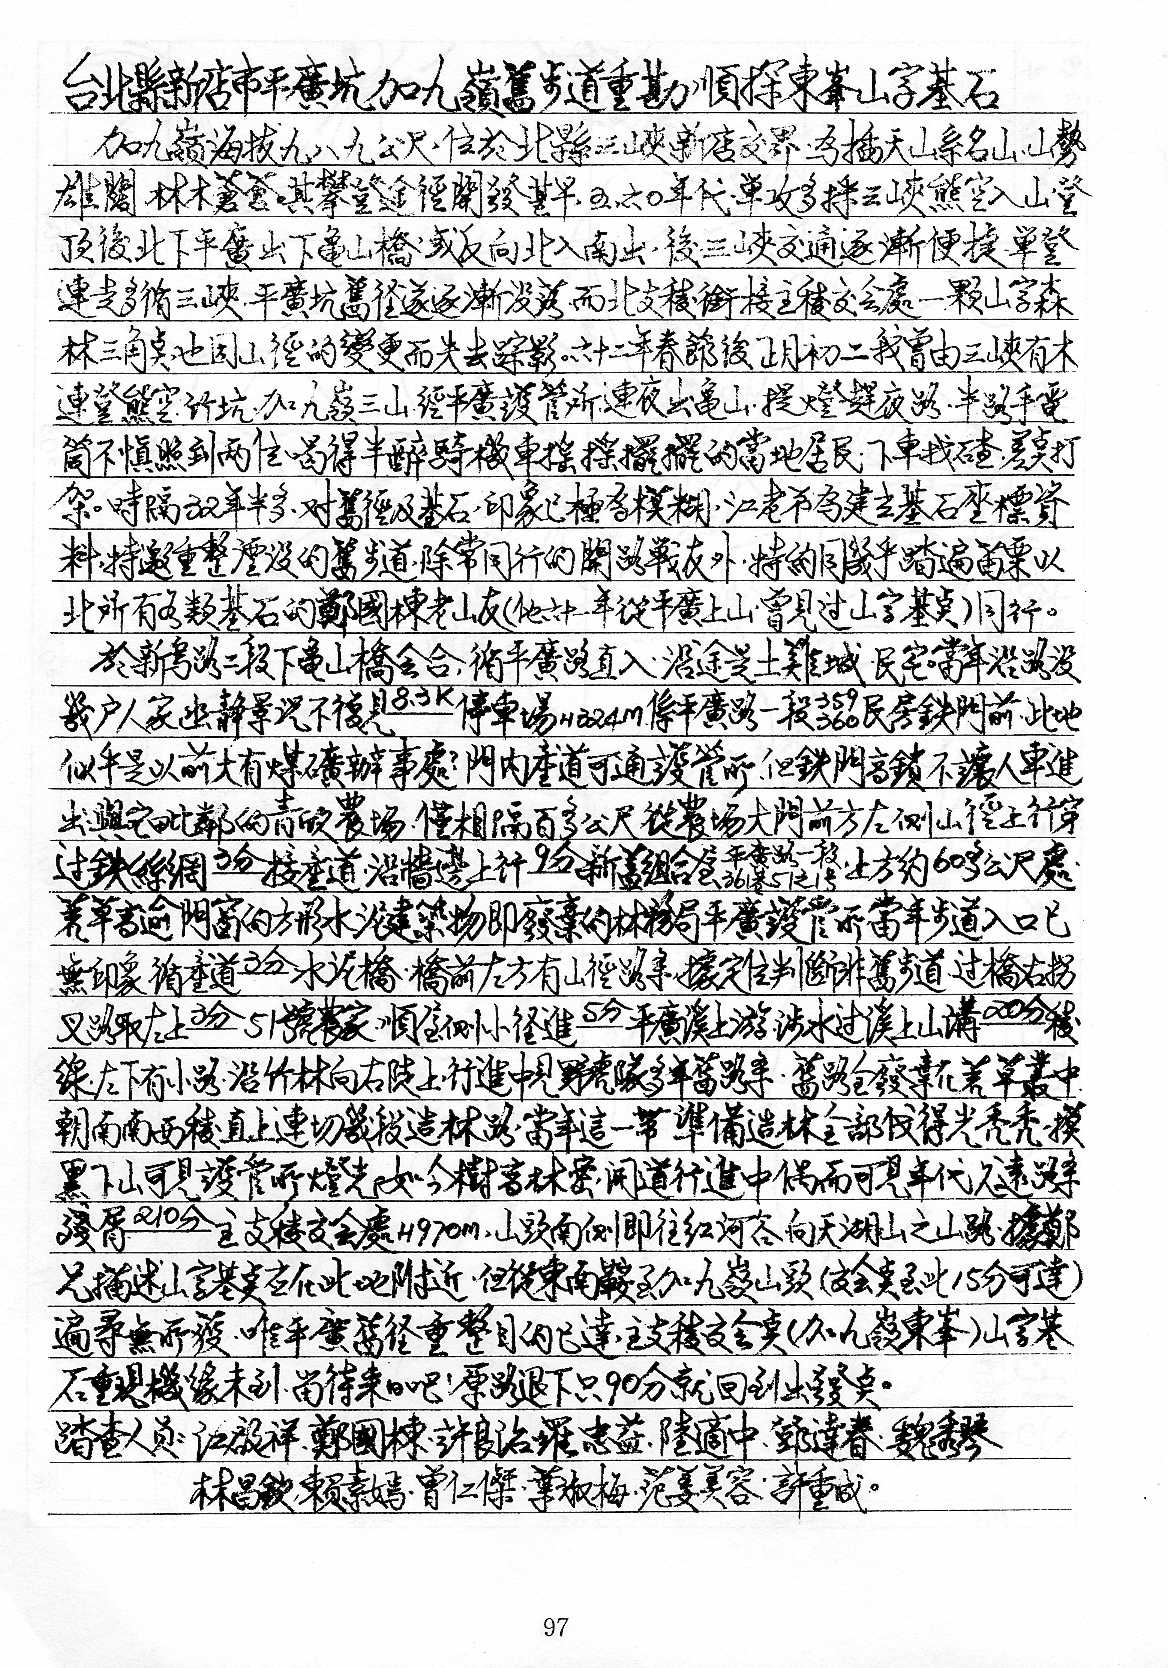 台北縣新店市平廣坑加九嶺舊步道重勘順探東峯山字基石
加九嶺海拔九八九公尺，位於北縣三峽新店交界，為插天山系名山，山勢
雄闊，林木蒼蒼。其攀登途徑開發甚早，五、六〇年代，單攻多採三峽熊空入山登
頂後北下平廣出下龜山橋，或反向北入南出，後三峽交通逐漸便捷，單登
連走多循三峽，平廣坑舊徑遂逐漸沒落，而北支稜銜接主稜交会處一顆山字森
林三角点，也因山徑的變更而失去踪影。六十二年春節後正月初二我曾由三峽有木
連登熊空、竹坑、加九嶺三山，經平廣護管所，連夜出龜山，提燈摸夜路，半路手電
筒不慎照到兩位喝得半醉騎機車搖搖擺擺的當地居民，下車找碴，差点打
架。時隔32年半多，对舊徑及基石，印象已極為模糊，江老弟為建立基石坐標資
料，特邀重整湮没的舊步道，除常同行的開路戰友外，特約同幾乎踏遍苗栗以
北所有各類基石的鄭國棟老山友(他六十一年從平廣上山，曾見过山字基点)同行。
於新烏路二段下龜山橋会合，循平廣路直入，沿途是土雞城，民宅。當年沿路没
幾户人家，幽静景況不復見8.3K停車場H324M，係平廣路一段359 360民房鉄門前，此地
似乎是以前大有煤礦辦事處？門内產道可通護管所，但鉄門高鎖不讓人車進
出，與它毗鄰的青欣農場，僅相隔百多公尺，從農場大門前方左側山徑上行，穿
过鉄絲網3分接產道，沿牆邊上行9分新蓋組合屋平廣路一段361巷51之1号，上方約60多公尺處，
芒草高逾門窗的方形水泥建築物即廢棄的林務局平廣護管所，當年步道入口已
無印象，循產道3分水泥橋，橋前左方有山徑路条，據定位判斷非舊步道，过橋右拐
叉路取左上3分51號農家，順宅側小徑進5分平廣溪上游，涉水过溪上山溝20分稜
線，左下有小路，沿竹林向右陡上，行進中見野虎隊多年舊路条，舊路全廢棄在芒草叢中，
朝南南西稜直上，連切幾段造林路，當年這一带準備造林，全部伐得光秃秃，摸
黑下山可見護管所燈光，如今樹高林密，開道行進中，偶而可見年代久遠路条
殘屑210分主支稜交会處H970M，山頭南側即往红河谷向天湖山之山路，據鄭
兄描述山字基点应在此地附近，但從東南鞍至加九嶺山頭(交会点至此15分可達)
遍尋無所獲，唯平廣舊徑重整目的已達，主支稜交会点(加九嶺東峯)山字基
石重現機緣未到，尚待來日吧！原路退下只90分就回到出發点。
踏查人員：江啟祥，鄭國棟，許良治，羅忠益，陸適中，鄧達春，魏秀琴
林昌欽，賴素嫣，曾仁傑，葉淑梅，范姜美容，許重成。
97